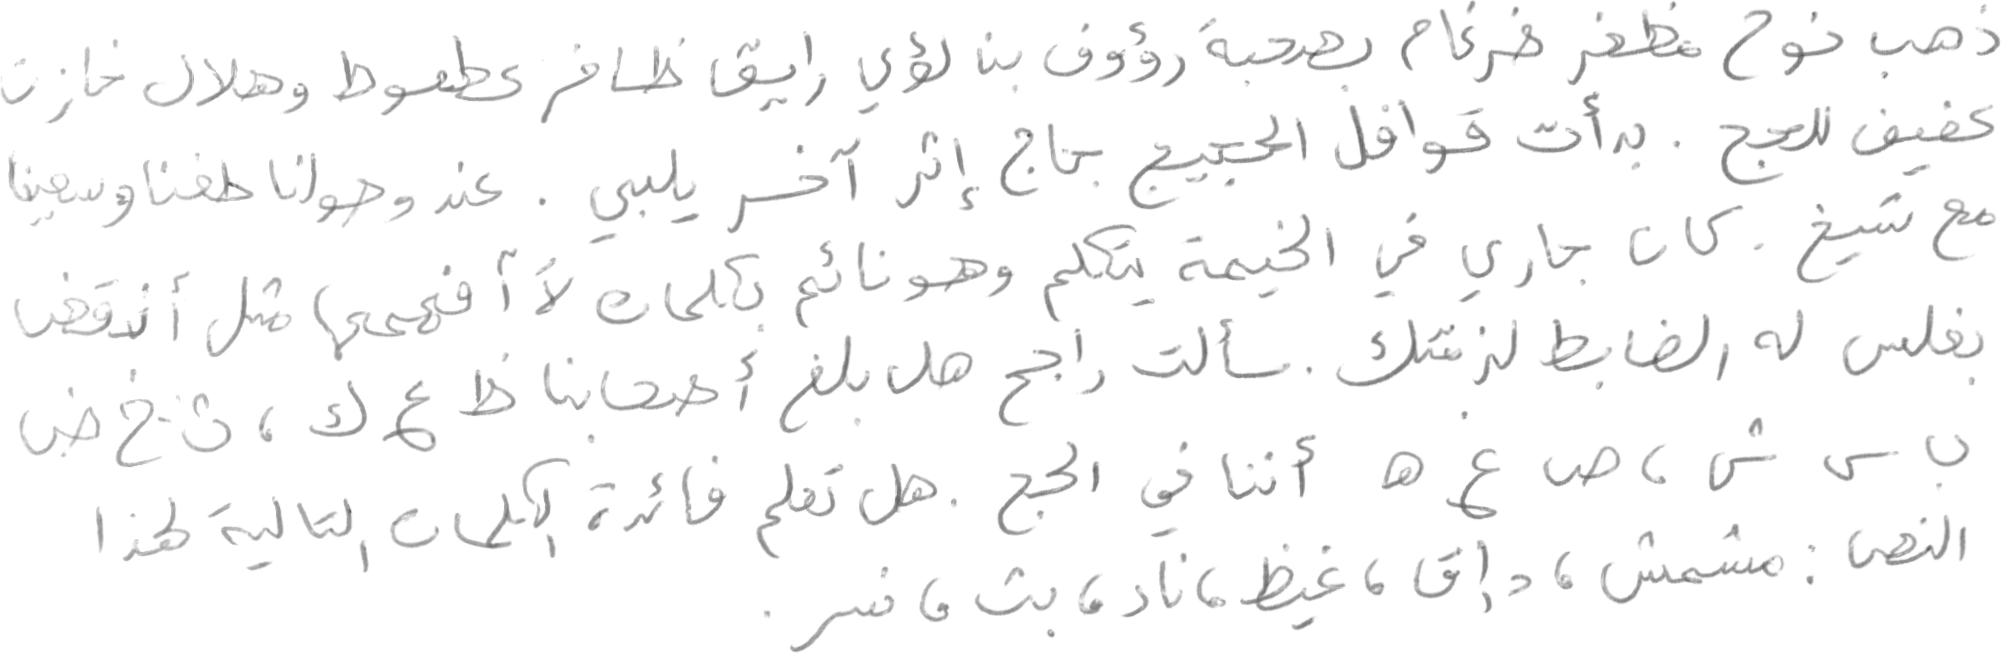 ذهب نوح مظفر ضرغام بصحبة رؤوف بنا لؤي رايق ظافر عطعوط وهلال خازن
كفيف للحج . بدأت قوافل الحجيج بحاج إثر آخر يلبي . عند وصولنا طفنا وسعينا
مع شيخ . كان جاري في الخيمة يتكلم وهو نائم بكلمات لا أفهمها مثل أندقض
بغلس له الضابط لزمتك . سألت راجح هل بلغ أصحابنا ظ ع ك ، ث خ ض
ب س ش ، ص غ ه أننا في الحج . هل تعلم فائدة الكلمات التالية لهذا
النص : مشمش ، داق ، غيظ ، ناد ، بث ، نسر .